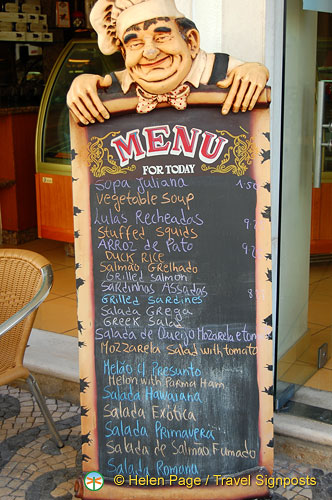 MENU
FOR TODAY
Sopa Juliana 1.50
Vegetable Soup
Lulas Recheadas
Stuffed Squids
Arroz de Pato
Duck Rice
Salmão Grelhado
Grilled Salmon
Sardinhas Assadas
Grilled Sardines
Salada Grega
Greek Salad
Salada de Queijo Mozzarela e tom
Mozzarela Salad with tomato
Melão c/ Presunto
Melon with Parma Ham
Salada Hawaiana
Salada Exótica
Salada Primavera
Salada de Salmão Fumado
Salada Romana
© Helen Page / Travel Signposts